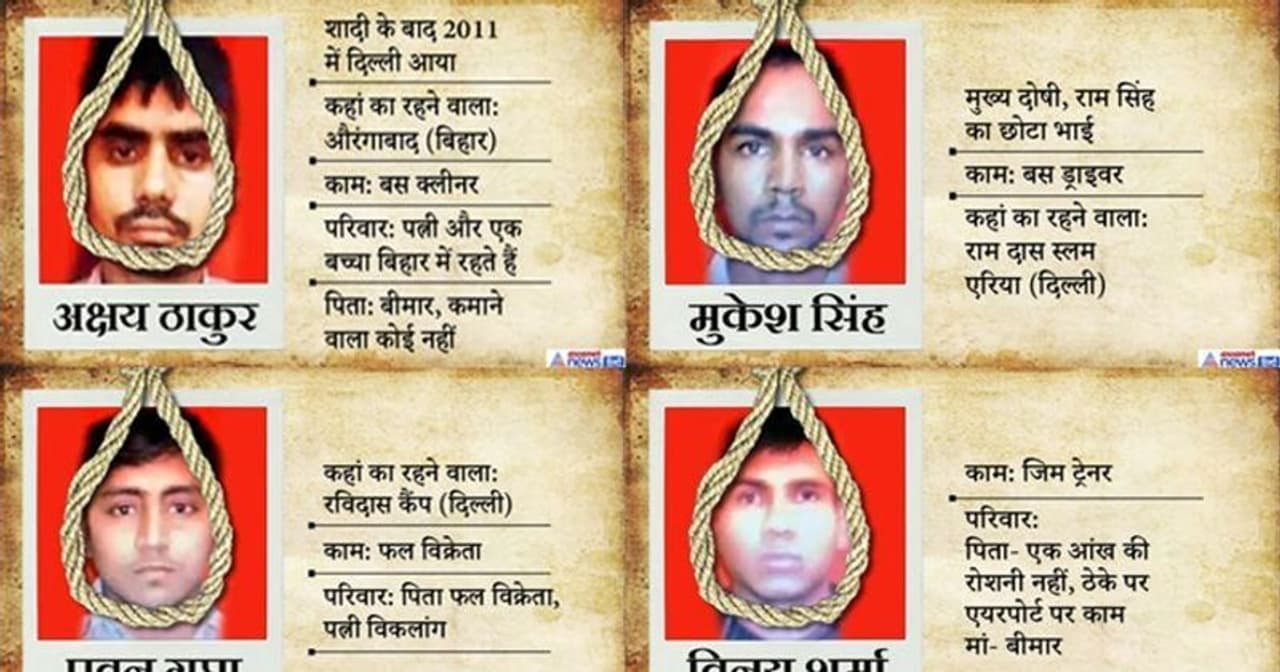 शादी के बाद 2011
में दिल्ली आया
कहां का रहने वाला:
औरंगाबाद (बिहार)
काम: बस क्लीनर
परिवार: पत्नी और एक
बच्चा बिहार में रहते हैं
पिता: बीमार, कमाने
वाला कोई नहीं
अक्षय ठाकुर
news
मुख्य दोषी, राम सिंह
का छोटा भाई
काम: बस ड्राइवर
कहां का रहने वाला:
राम दास स्लम
एरिया (दिल्ली)
मुकेश सिंह
news
कहां का रहने वाला:
रविदास कैंप (दिल्ली)
काम: फल विक्रेता
परिवार: पिता फल विक्रेता,
पत्नी विकलांग
काम: जिम ट्रेनर
परिवार:
पिता- एक आंख की
रोशनी नहीं, ठेके पर
एयरपोर्ट पर काम
मां- बीमार